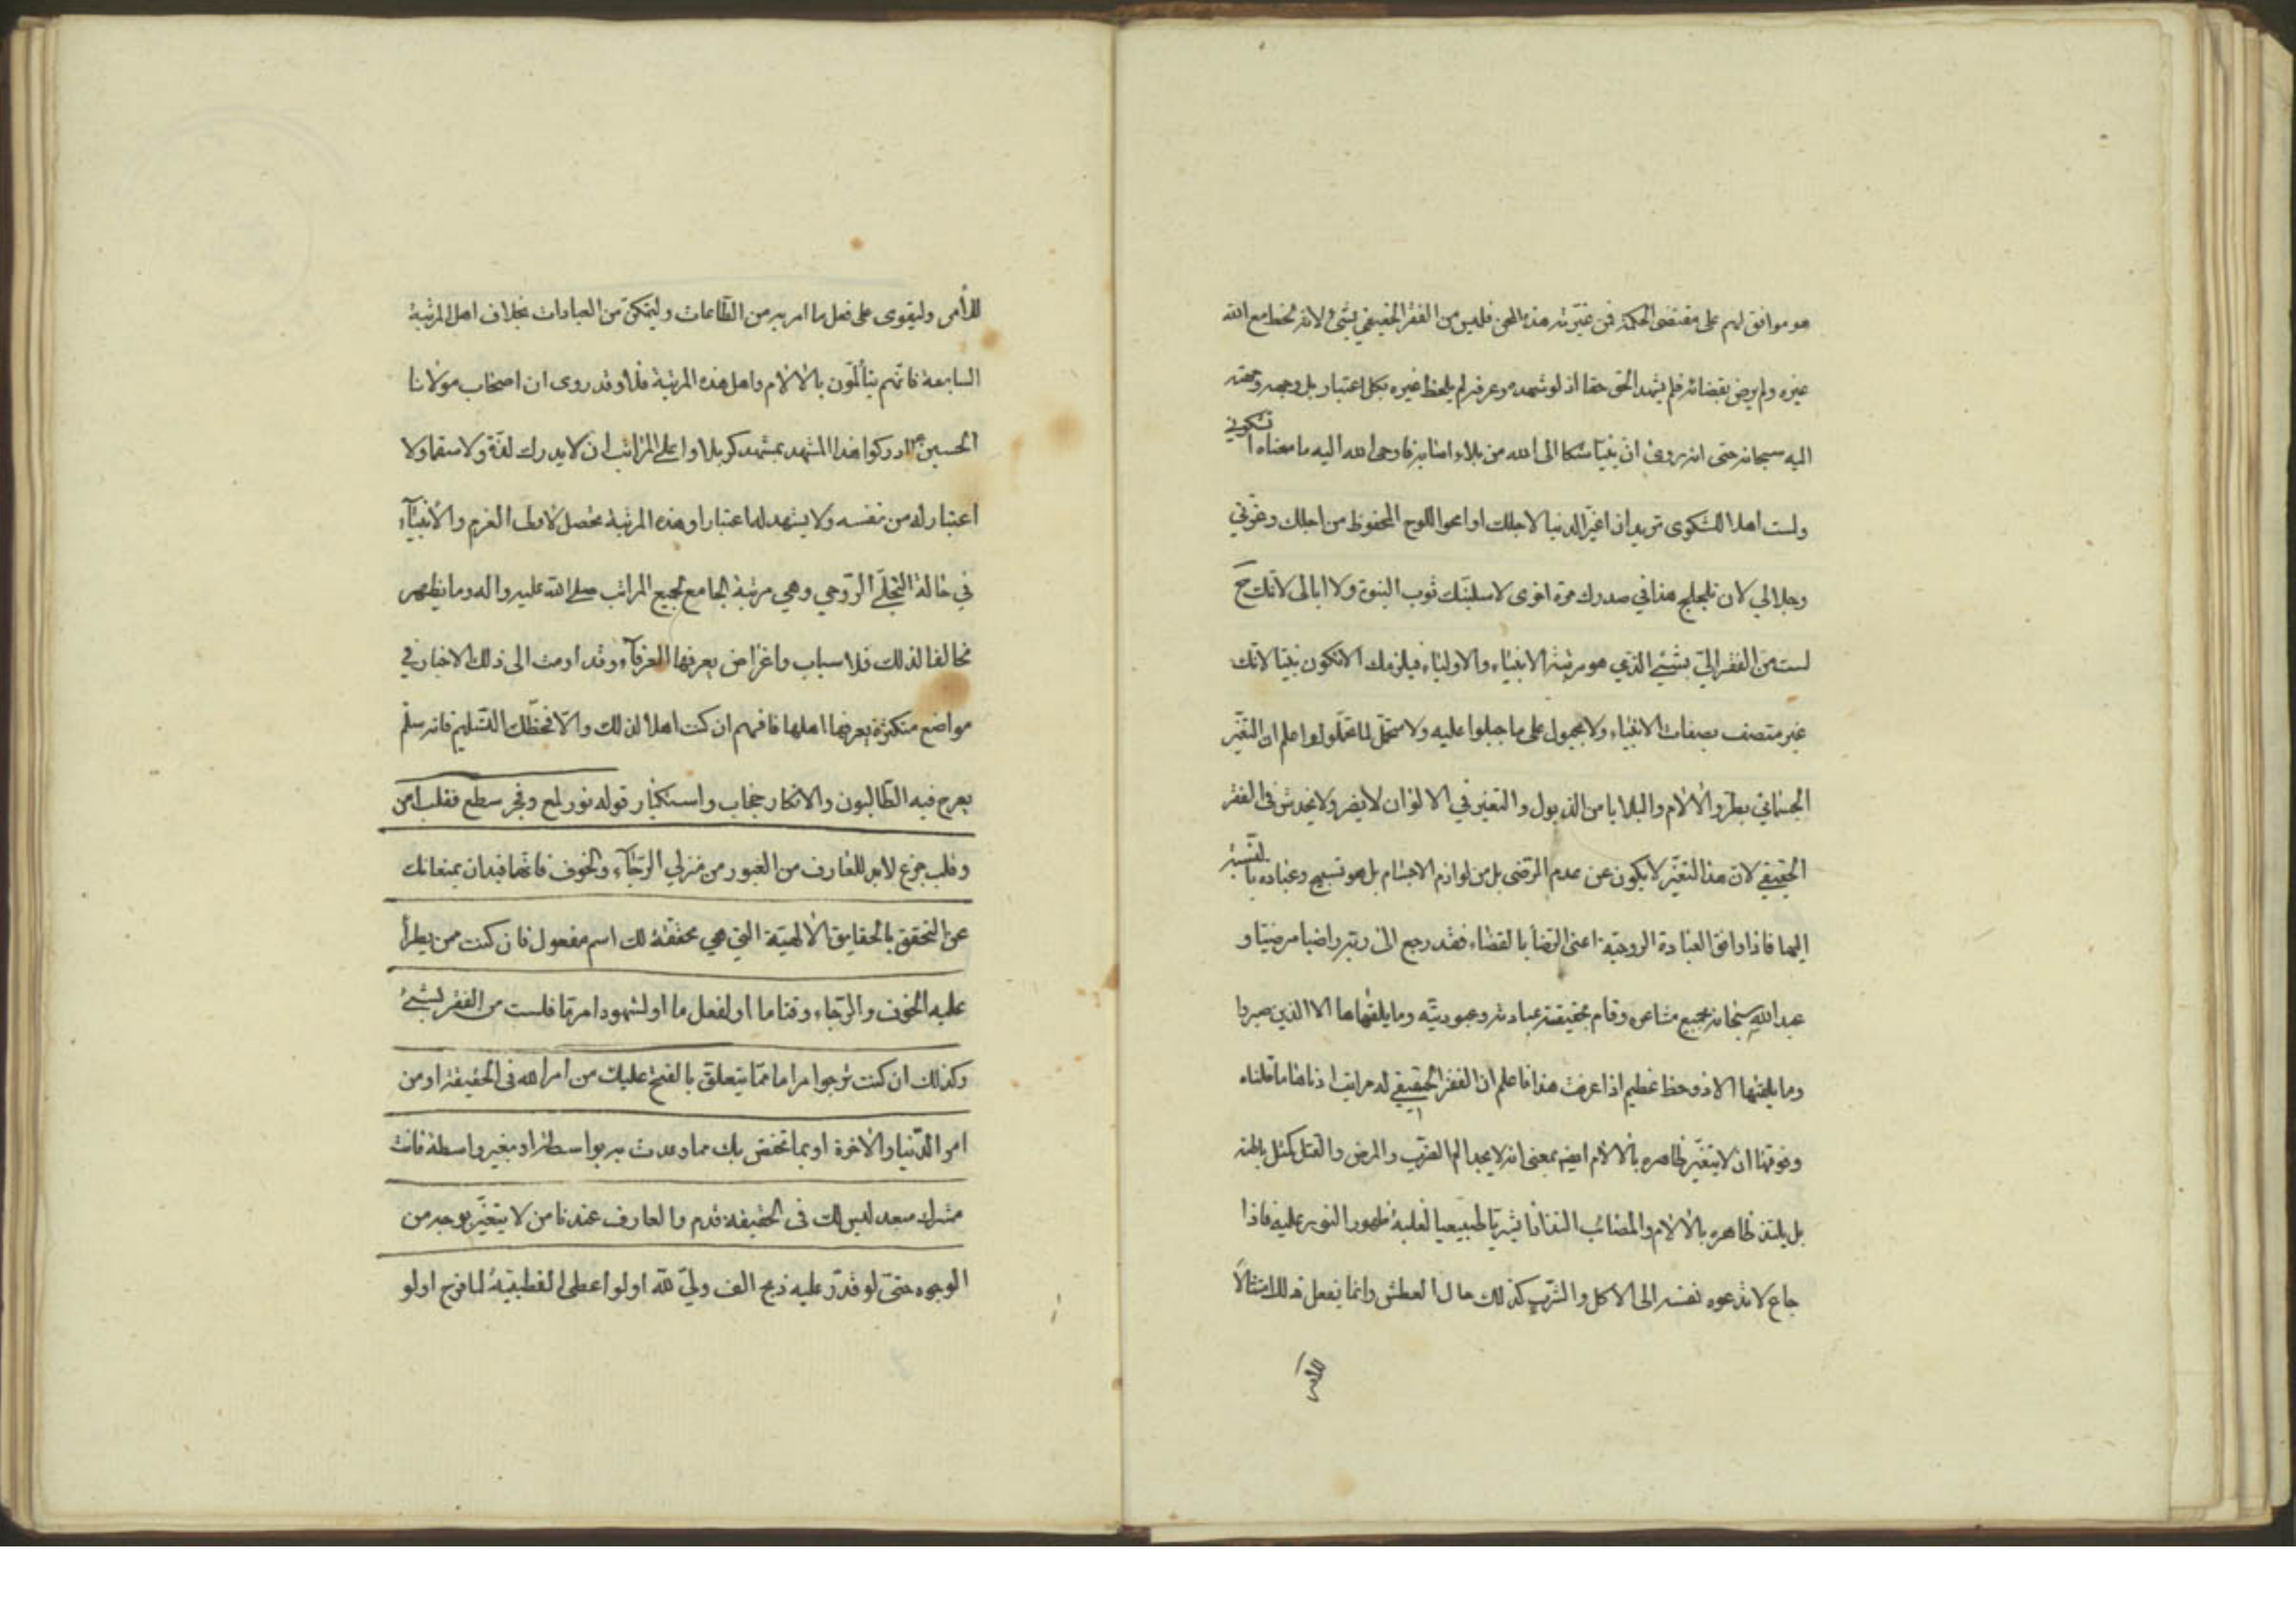 هو موافق لهم على مقتضى الحكمة فمن غيّرته هذه المحن فليس من الفقر الحقيقي بشئ لانه لحظ مع الله
غيره ولم يرض بقضائه فلم يشهد الحق حقا اذ لو شهده وعرفه لم يلحظ غيره بكل اعتبار بل وجهه وجهته
اليه سبحانه حتى انه روى ان نبيّا شكا الى الله من بلاء اصابه فاوحى الله اليه ما معناه اتشكوني
ولست اهلا للشكوى تريد ان اغيّر الدنيا لاجلك او امحو اللوح المحفوظ من اجلك وعزّتي
وجلالي لان تلجلج هذا في صدرك مرة اخرى لاسلبنّك ثوب النبوة ولا ابالى لانّك ح
لست من الفقر الىّ بشئ الذي هو مرتبة الانبياء والاولياء فيلزمك الا تكون نبيّا لانك
غير متصف بصفات الانبياء ولا مجبول على ما جبلوا عليه ولا متحمّل لما تحمّلوا واعلم ان التغيّر
الجسماني بطروّ الآلام والبلايا من الذبول والتغير في الالوان لا يضر ولا يخدش في الفقر
الحقيقي لان هذا التغيّر لا يكون عن عدم الرّضى بل من لوازم الاجسام بل هو تسبيح وعباده بالنّسبة
اليها فاذا وافق العبادة الروحيّة اعنى الرّضا بالقضاء فقد رجع الى ربّه راضيا مرضيّا و
عبد الله سبحانه بجميع مشاعره وقام بحقيقة عبادته وعبوديّته وما يلقّاها الا الذين صبروا
وما يلقّيها الا ذو حظ عظيم اذا عرفت هذا فاعلم ان الفقر الحقيقي له مراتب ادناها ما قلناه
وفوقها ان لا يتغيّر ظاهره بالآلام ايضا بمعنى انه لا يجد الم الضرب والمرض والقتل كمثل باطنه
بل يلتذ ظاهره بالآلام والمصائب التذاذا بشريّا طبيعيا لغلبة ظهور النور عليه فاذا
جاع لا تدعوه نفسه الى الاكل والشّرب كذلك حال العطش وانما يفعل ذلك امتثالاً
للأمر
للأمر وليقوى على فعل ما امر به من الطّاعات وليتمكّن من العبادات بخلاف اهل المرتبة
السابعة فانّهم يتألّمون بالآلام واهل هذه المرتبة فلا وقد روى ان اصحاب مولانا
الحسين ع ادركوا هذا المشهد بمشهد كربلا واعلى المراتب ان لا يدرك لذّة ولا سقما ولا
اعتبار له من نفسه ولا يشهد له اعتبارا وهذه المرتبة تحصل لاولى العزم والأنبيآء
في حالة التجلّى الرّوحي وهي مرتبة الجامع لجميع المراتب صلى الله عليه واله وما يظهر
مخالفا لذلك فلاسباب واغراض يعرفها العرفآء وقد اومت الى ذلك الاخبار في
مواضع متكثرة يعرفها اهلها فافهم ان كنت اهلا لذلك والّا فحظّك التّسليم فانه سلّم
يعرج فيه الطّالبون والانكار حجاب واستكبار قوله نور لمع وفجر سطع فقلب امن
وقلب جزع لابد للعارف من العبور من منزلي الرّجآء والخوف فانّهما قيدان يمنعانك
عن التحقق بالحقايق الالهيّة التي هي محققة لك اسم مفعول فان كنت ممن يطرأ
عليه الخوف والرّجاء وقتا ما او لفعل ما او لشهود امر ما فلست من الفقر بشئ
وكذلك ان كنت ترجو امرا ما ممّا يتعلق بالفتح عليك من امر الله في الحقيقة او من
امر الدّنيا والآخرة او بما تختص بك مما وعدت به بواسطة او بغير واسطة فانت
مشرك معه ليس لك في الحقيقة قدم والعارف عندنا من لا يتغيّر بوجه من
الوجوه حتّى لو قدّر عليه ذبح الف وليّ لله او لو اعطى القطبيّة لما فرح او لو